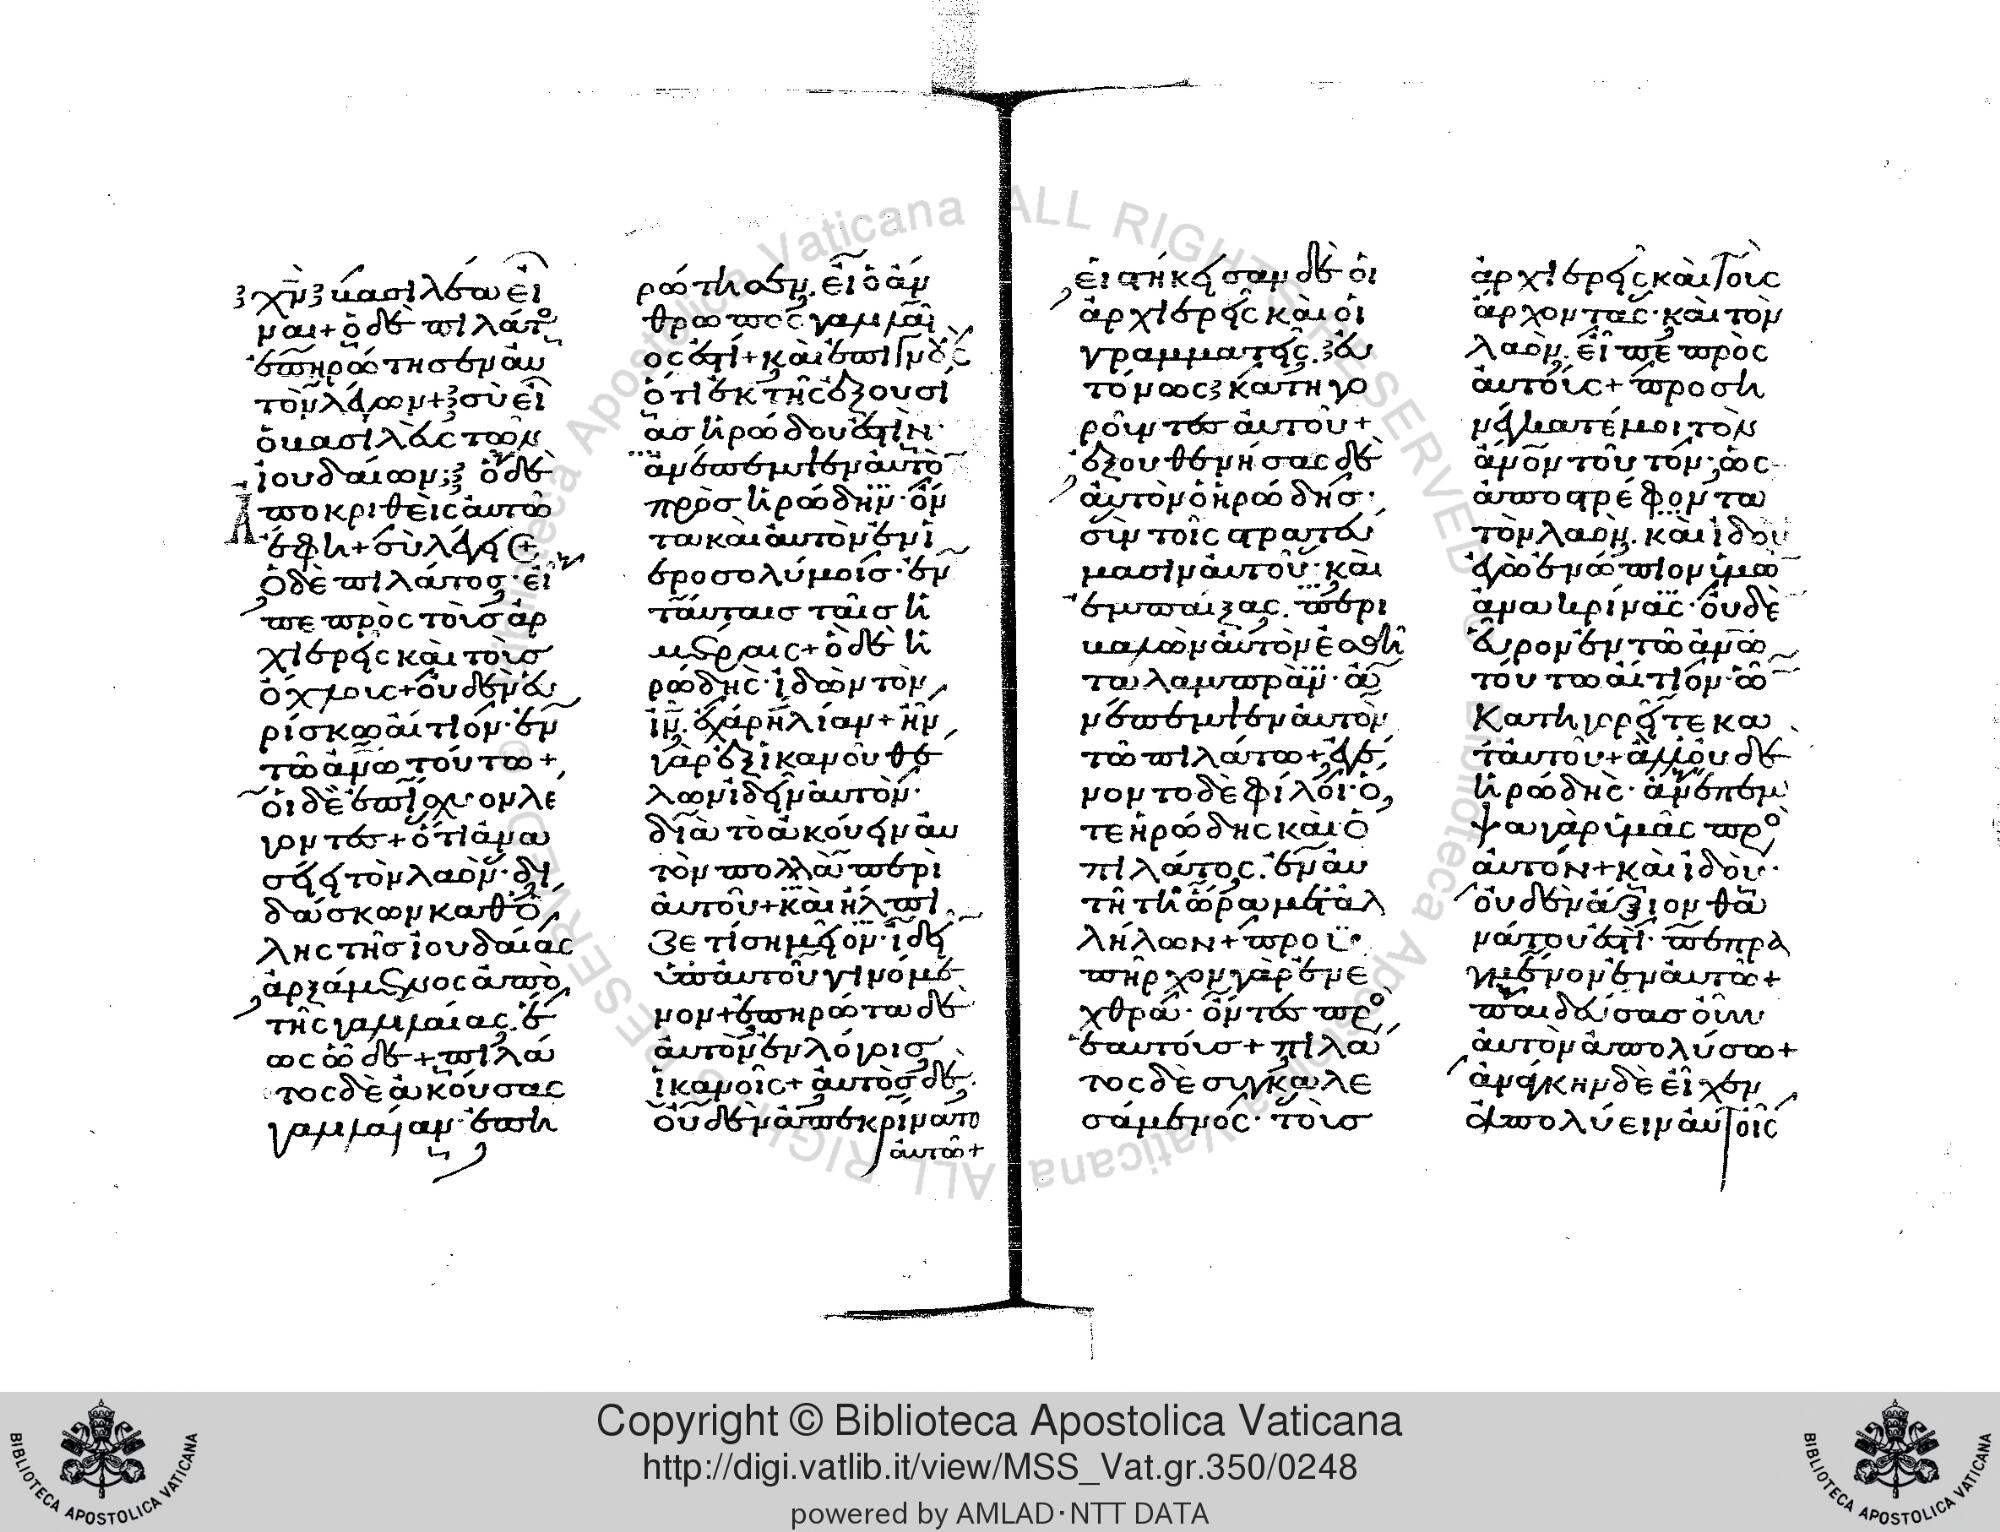 χν βασιλέα εἶ
ναι + ὁ δὲ πιλάτο
ἐπηρώτησεν αὐ
τὸν λέγων + σὺ εἶ
ὁ βασιλεὺς τῶν
ἰουδαίων ; ὁ δὲ
ἀποκριθεὶς αὐτῶ
ἔφη + σὺ λέγεις +
ὁ δὲ πιλάτος · εἶ
πε πρὸς τοὺς ἀρ
χιερεῖς καὶ τοὺς
ὄχλους + οὐδὲν εὑ
ρίσκω αἴτιον · ἐν
τῶ ἀνω τούτω +
οἱ δὲ ἐπίσχυον λέ
γοντες + ὅτι ἀνα
σείει τὸν λαόν · δι
δάσκων καθ' ὅ
λης τῆς ἰουδαίας
ἀρξάμενος ἀπὸ
τῆς γαλιλαίας · ἕ
ως ὧδε + πιλά
τος δὲ ἀκούσας
γαλιλαίαν · ἐπη
ρώτησεν · εἰ ὁ ἄν
θρωπος γαλιλαῖ
ός ἐστι + καὶ ἐπιγνοὺς
ὅτι ἐκ τῆς ἐξουσί
ας ἡρώδου ἐστὶν ·
ἀνέπεμψεν αὐτὸ
πρὸς ἡρώδην · ὄν
τα καὶ αὐτὸν ἐν ἱ
εροσολύμοις · ἐν
ταύταις ταῖς ἡ
μέραις + ὁ δὲ ἡ
ρώδης · ἰδὼν τὸν
ιν · ἐχάρη λίαν + ἦν
γὰρ ἐξ ἱκανοῦ θέ
λων ἰδεῖν αὐτόν ·
διὰ τὸ ἀκούειν αὐ
τὸν πολλὰ περὶ
αὐτοῦ + καὶ ἤλπι
ζέ τι σημεῖον · ἰδεῖ
ὑπ' αὐτοῦ γινόμε
νον + ἐπηρώτα δὲ
αὐτὸν ἐν λόγοις
ἱκανοῖς + αὐτὸς δὲ
οὐδὲν ἀπεκρίνατο
αὐτῶ +
εἱστήκεισαν δὲ οἱ
ἀρχιερεῖς καὶ οἱ
γραμματεῖς · εὐ
τόνως κατηγο
ροῦντες αὐτοῦ +
ἐξουθενήσας δὲ
αὐτὸν ὁ ἡρώδης ·
σὺν τοῖς στρατεύ
μασιν αὐτοῦ · καὶ
ἐμπαίξας · περι
βαλὼν αὐτὸν ἐσθῆ
τα λαμπρὰν · ἀ
νέπεμψεν αὐτὸν
τῶ πιλάτω + ἐγέ
νοντο δὲ φίλοι · ὅ
τε ἡρώδης καὶ ὁ
πιλάτος · ἐν αὐ
τῆ τῆ ὥρα μετ' ἀλ
λήλων + προϋ
πῆρχον γὰρ ἐν ἔ
χθρα · ὄντες πρὸ
ἑαυτούς + πιλά
τος δὲ συγκαλε
σάμενος · τοὺς
ἀρχιερεῖς καὶ τοὺς
ἄρχοντας · καὶ τὸν
λαὸν · εἶπε πρὸς
αὐτούς + προση
νέγκατέ μοι τὸν
ἄνον τοῦτον · ὡς
ἀποστρέφοντα
τὸν λαόν · καὶ ἰδοὺ
ἐγὼ ἐνώπιον ὑμῶ
ἀνακρίνας · οὐδὲ
εὗρον ἐν τῶ ἀνω
τούτω αἴτιον · ὧ
κατηγορεῖτε κα
τ' αὐτοῦ + ἀλλ' οὐδὲ
ἡρώδης · ἀνέπεμ
ψα γὰρ ὑμᾶς πρὸ
αὐτόν + καὶ ἰδοὺ ·
οὐδὲν ἄξιον θα
νάτου ἐστὶ · πεπρα
γμένον ἐν αὐτῶ +
παιδεύσας οὖν
αὐτὸν ἀπολύσω +
ἀνάγκην δὲ εἶχεν
ἀπολύειν αὐτοῖς
Vaticana ALL RIGHTS RESERVED © Biblioteca Apostolica Vaticana ALL RIGHTS RESERVED © Biblioteca Apostolica
Copyright © Biblioteca Apostolica Vaticana
http://digi.vatlib.it/view/MSS_Vat.gr.350/0248
powered by AMLAD·NTT DATA
BIBLIOTECA APOSTOLICA VATICANA
BIBLIOTECA APOSTOLICA VATICANA